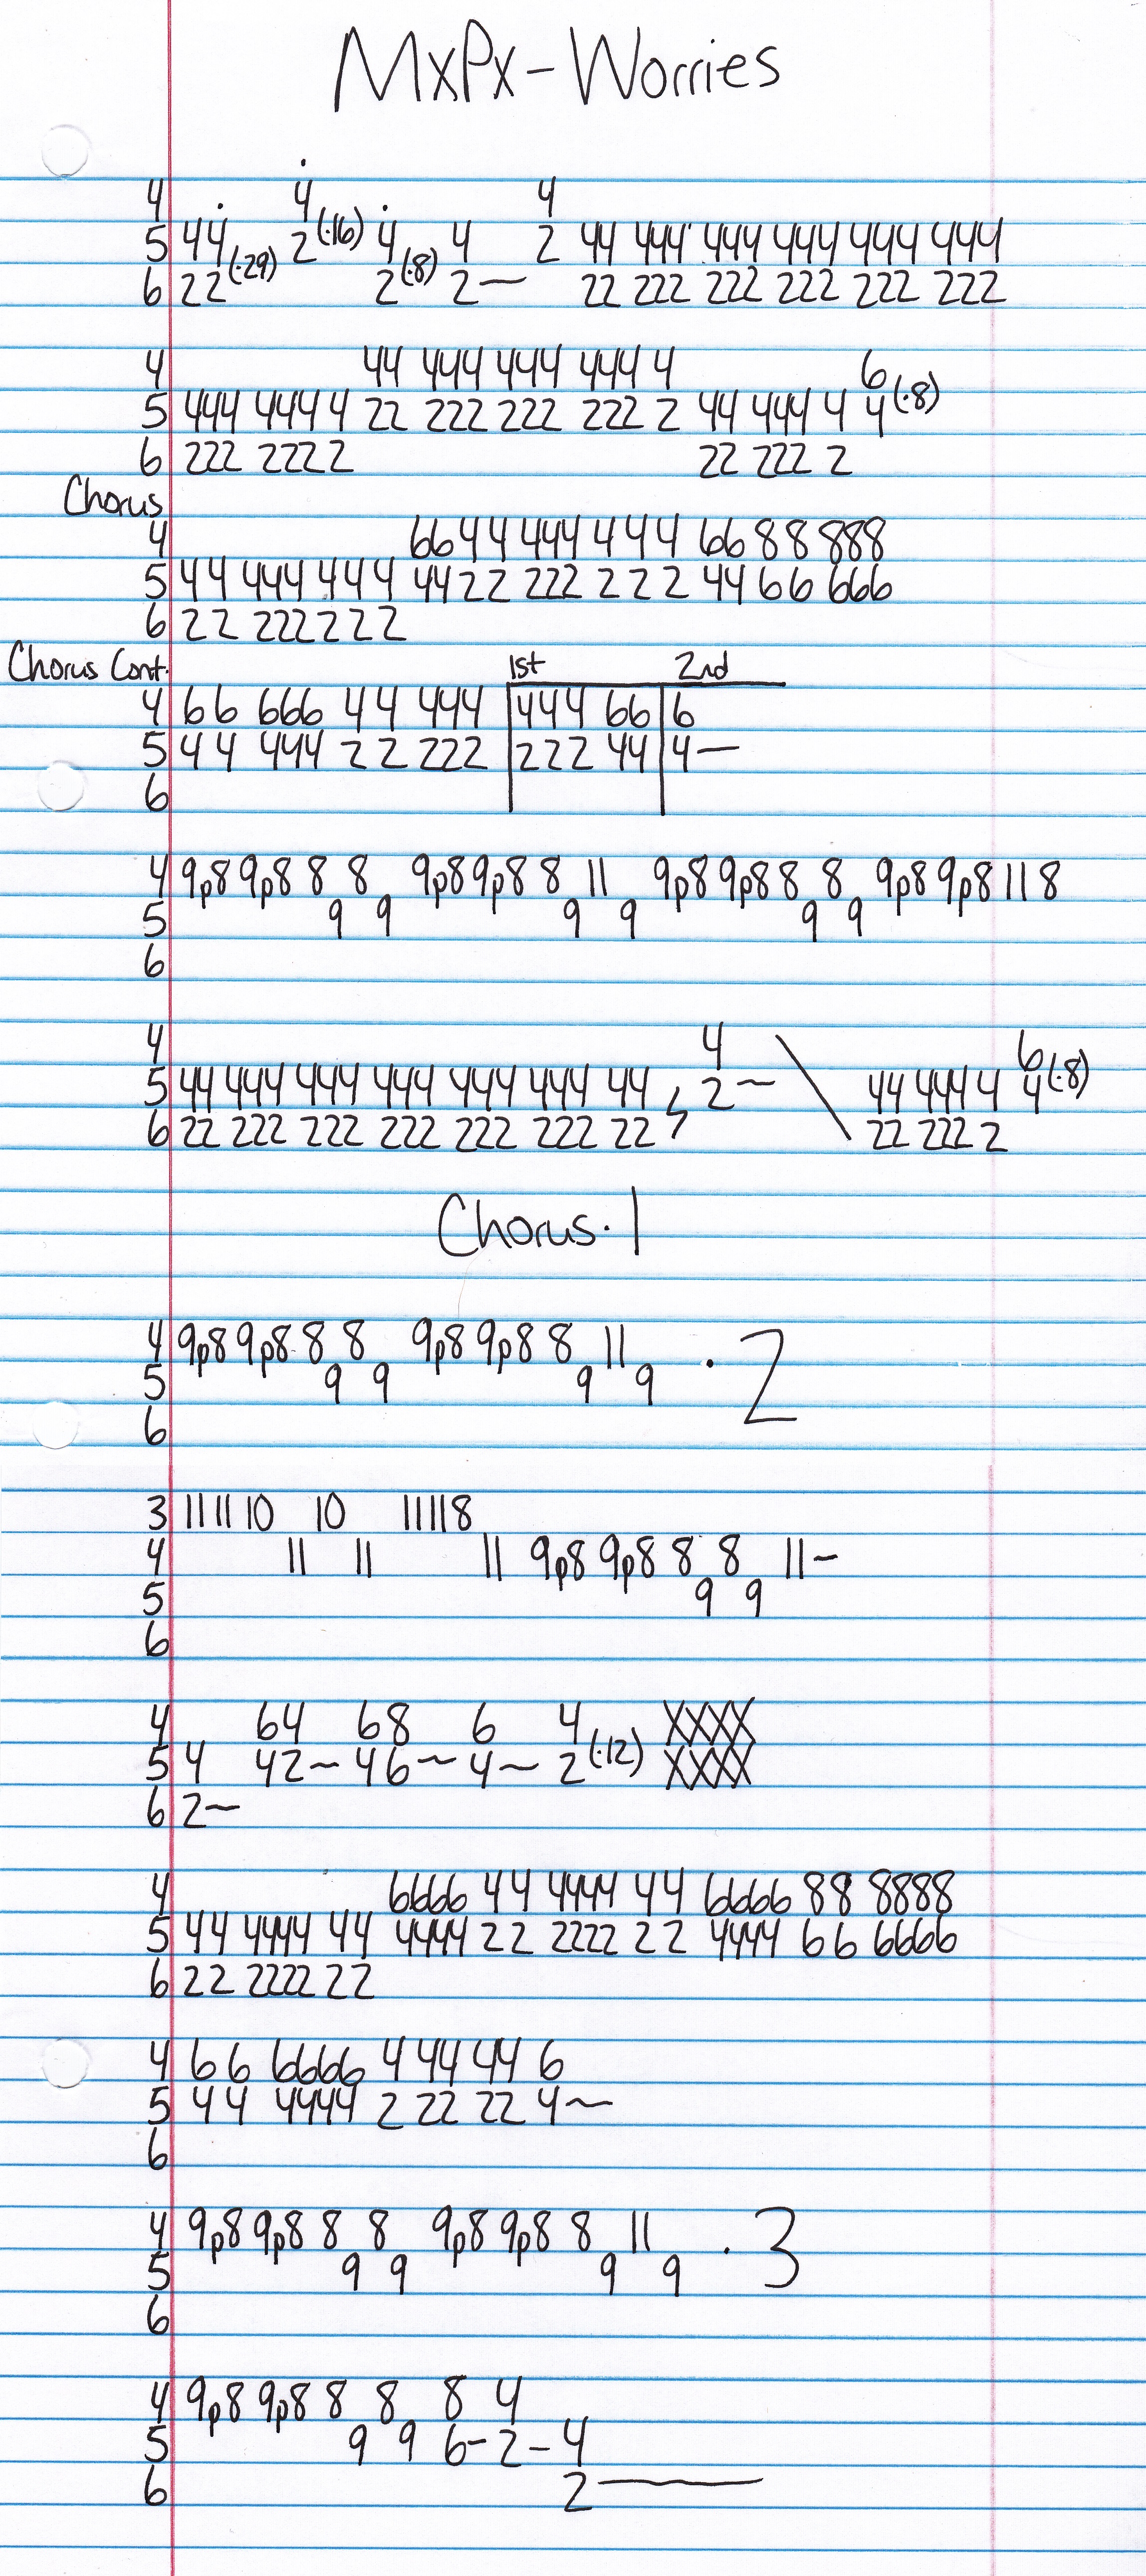 MxPx - Worries
4 4 4
5 44 (·29) 2 (·16) 4 4 2 44 444 444 444 444 444
6 22 2 (·8) 2— 22 222 222 222 222 222
4 44 444 444 4444 4 6
5 444 4444 4 22 222 222 222 2 44 444 4 4 (·8)
6 222 2222 2 22 222 2
Chorus
4 66 44 444 4 4 4 66 88 888
5 44 444 444 44 22 222 2 2 2 44 66 666
6 22 222 2 2 2
Chorus Cont. 1st 2nd
4 66 666 44 444 444 66 6
5 44 444 22 222 222 44 4—
6
4 9p8 9p8 8 8 9p8 9p8 8 11 9p8 9p8 8 8 9p8 9p8 11 8
5 9 9 9 9 9 9
6
4 4 6
5 44 444 444 444 444 444 44 2~ 44 4444 4 4 (·8)
6 22 222 222 222 222 222 22 22 222 2
Chorus · 1
4 9p8 9p8 8 8 9p8 9p8 8 11 · 2
5 9 9 9 9
6
3 11 11 10 10 11 11 8
4 11 11 11 9p8 9p8 8 8 11~
5 9 9
6
4 64 68 6 4 XXXX
5 4 42~ 46~ 4~ 2 (·12) XXXX
6 2~
4 6666 44 4444 44 6666 88 8888
5 44 4444 44 4444 22 2222 22 4444 66 6666
6 22 2222 22
4 66 6666 4 44 44 6
5 44 4444 2 22 22 4~
6
4 9p8 9p8 8 8 9p8 9p8 8 11 · 3
5 9 9 9 9
6
4 9p8 9p8 8 8 8 4
5 9 9 6- 2- 4
6 2—